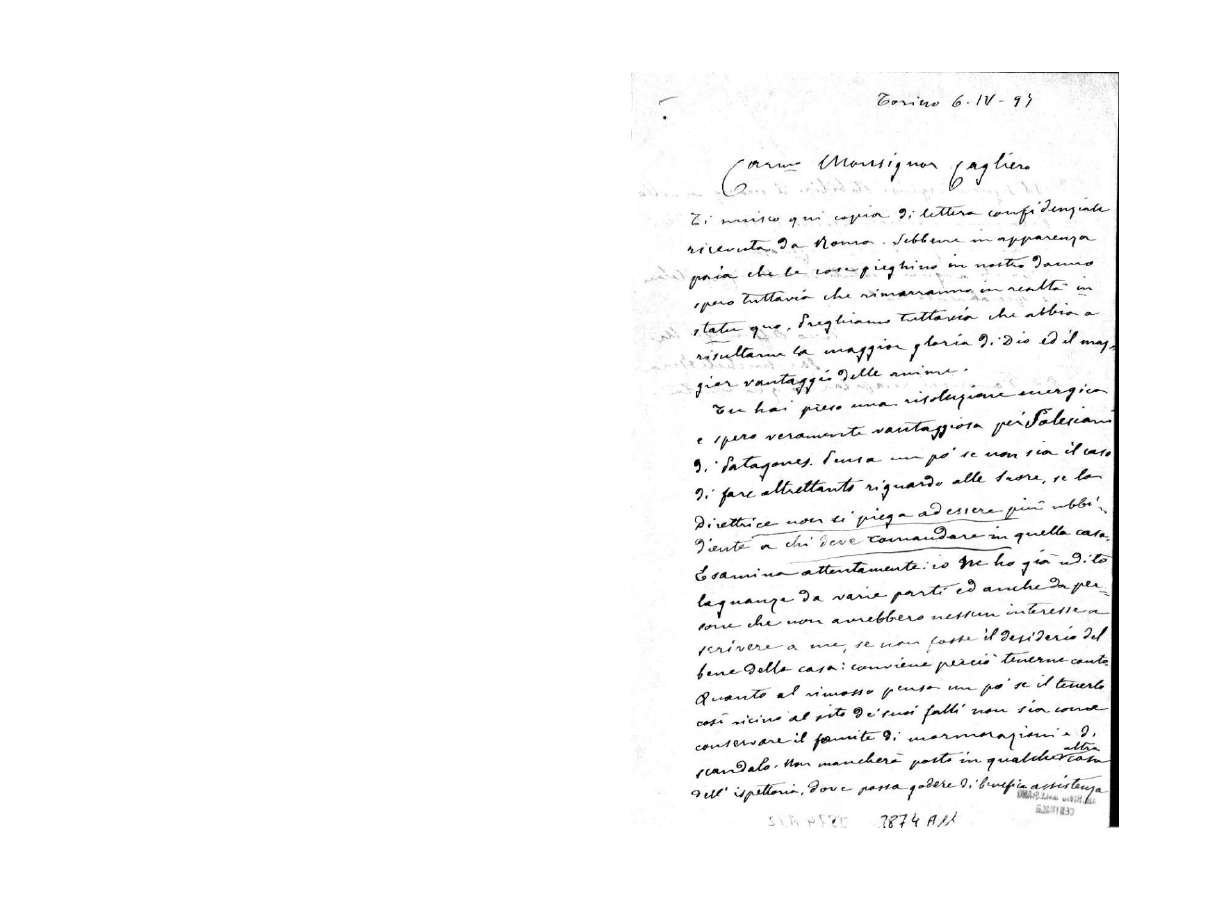 Torino 6-IV-97
Carmo Monsignor Cagliero
Ti unisco qui copia di lettera confidenziale
ricevuta da Roma. Sebbene in apparenza
paia che le cose pieghino in nostro danno
spero tuttavia che rimarranno in realtà in
statu quo. Preghiamo tuttavia che abbia a
risultarne la maggior gloria di Dio ed il mag-
gior vantaggio delle anime.
Tu hai preso una risoluzione energica
e spero veramente vantaggiosa pei Salesiani
di Patagones. Pensa un po' se non sia il caso
di fare altrettanto riguardo alle Suore, se la
Direttrice non si piega ad essere più ubbi-
diente a chi deve comandare in quella casa.
Esamina attentamente: io ne ho già udito
lagnanze da varie parti ed anche da per-
sone che non avrebbero nessun interesse a
scrivere a me, se non fosse il desiderio del
bene della casa: conviene perciò tenerne conto.
Quanto al rimosso pensa un po' se il tenerlo
così vicino al sito de' suoi falli non sia come
conservare il fomite di mormorazioni e di
scandalo. Non mancherà posto in qualche altra casa
dell' ispettoria, dove possa godere di benefica assistenza
3874 A11